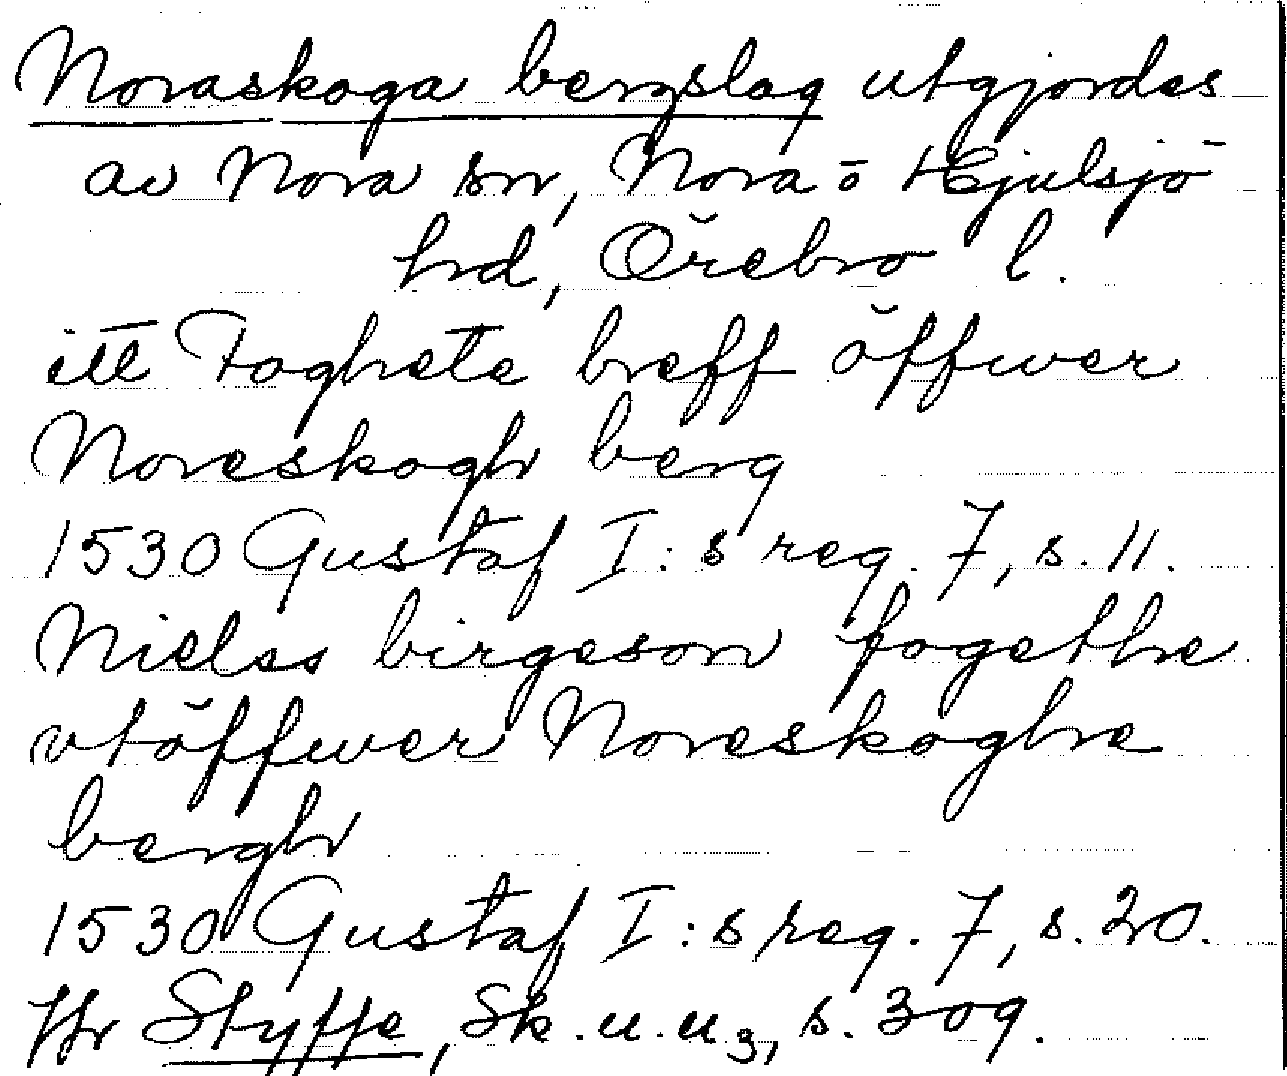 Noraskoga bergslag utgjordes
av Nora sn, Nora o Hjulsjö
hrd, Örebro l.
itt Foghete breff öffwer
Noreskogh berg
1530 Gustaf I:s reg. 7, s. 11.
Nielss birgeson fogethe
vtöffwer Noreskoghe
bergh
1530 Gustaf I:s reg. 7, s. 20.
Jfr Styffe, Sk.u.u3, s. 309.